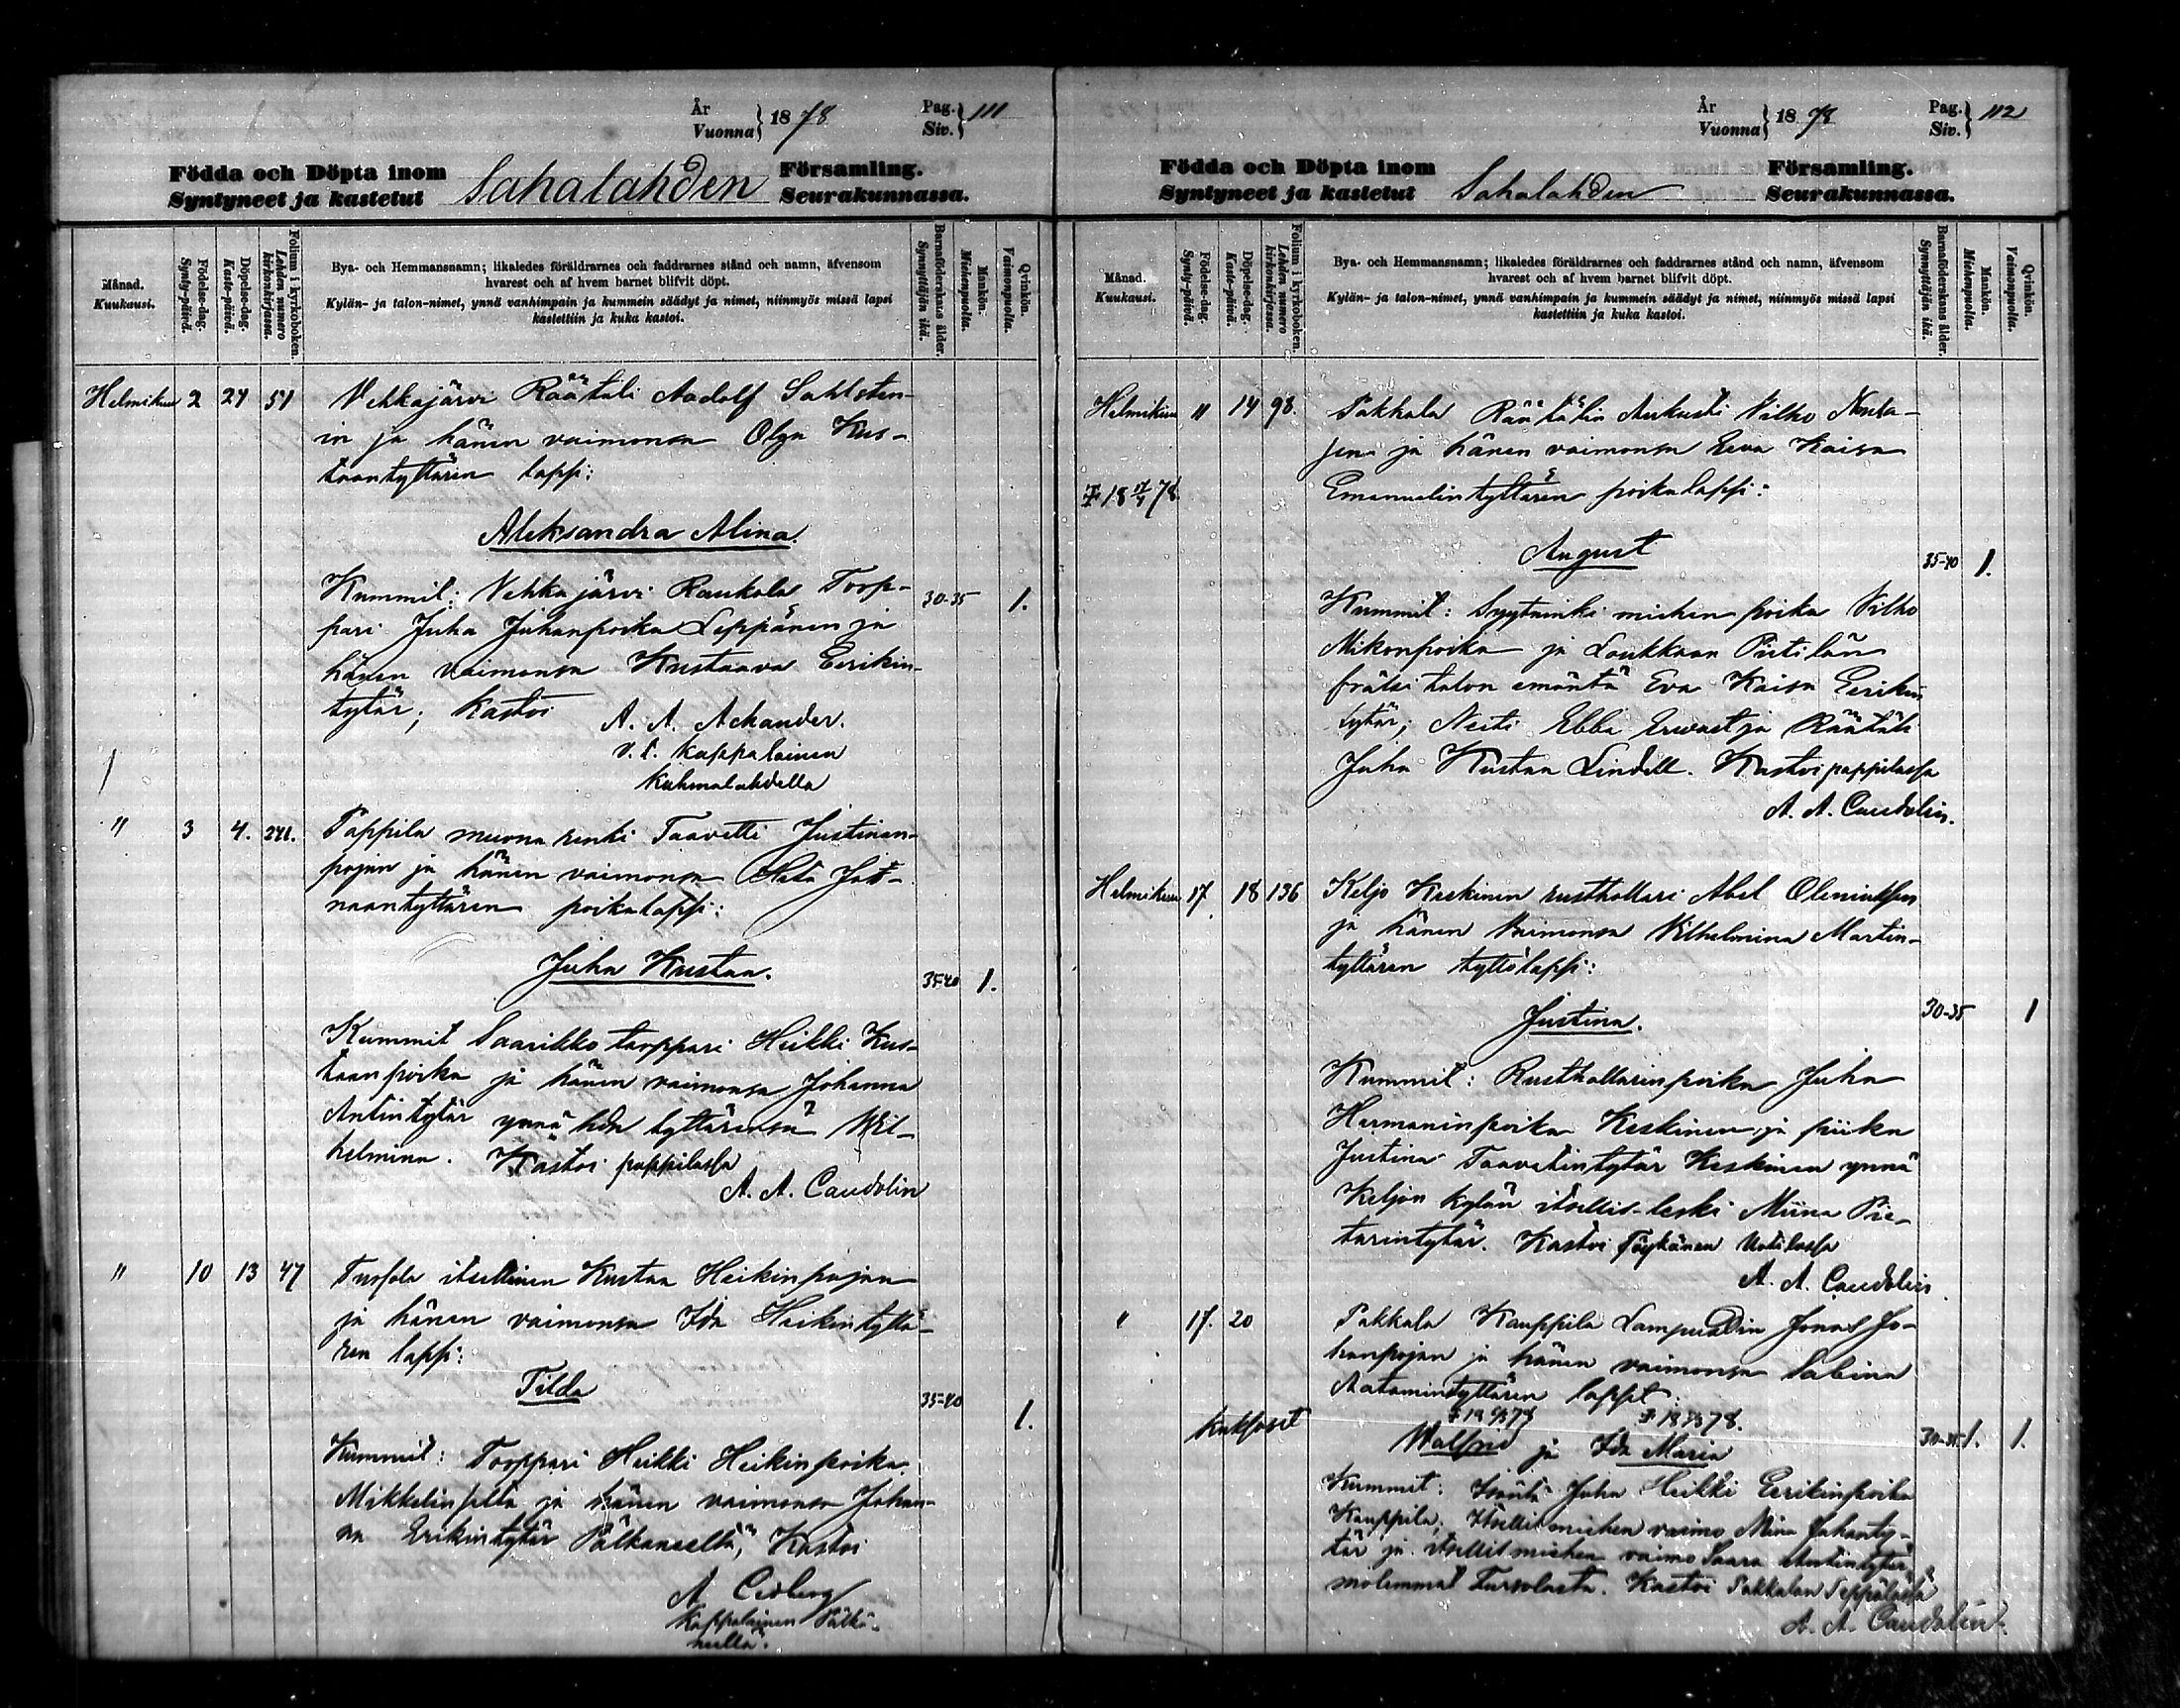 År
Vuonna } 1878
Pag.
Siv. } 111
Födda och Döpta inom
Syntyneet ja kastetut
Sahalahden
Församling.
Seurakunnassa.
Månad.
Kuukausi.
Födelse-dag.
Synty-päivä.
Döpelse-dag.
Kaste-päivä.
Folium i kyrkoboken.
Lehden numero
kirkonkirjassa.
Bya- och Hemmansnamn; likaledes föräldrarnes och faddrarnes stånd och namn, äfvensom
hvarest och af hvem barnet blifvit döpt.
Kylän- ja talon-nimet, ynnä vanhimpain ja kummein säädyt ja nimet, niinmyös missä lapsi
kastettiin ja kuka kastoi.
Barnaföderskans ålder.
Synnyttäjän ikä.
Mankön.
Miehenpuolta.
Qvinkön.
Vaimonpuolta.
Helmikuu 2 24 54 Vehkajärvi Räätäli Aadolf Sahlsten-
in ja hänen vaimonsa Olga Kus-
taantyttären lapsi:
Aleksandra Alina.
Kummit: Vehkajärvi Raukola Torp- 30-35 1.
pari Juha Juhanpoika Leppänen ja
hänen vaimonsa Kustaava Eerikin-
tytär; Kastoi A. A. Achander.
v. t. kappalainen
Kuhmalahdella
" 3 4. 241. Pappila muona renki Taavetti Justinan-
pojan ja hänen vaimonsa
naantyttären poikalapsi:
Juha Kustaa. 35-40 1.
Kummit Saarikko torppari Heikki Kus-
taanpoika ja hänen vaimonsa Johanna
Antintytär ynnä hdn tyttärensä Wil-
helmina. Kastoi pappilassa
A. A. Candolin
" 10 13 47 Tursola itsellinen Kustaa Heikinpojan
ja hänen vaimonsa Ida Heikintyttä-
ren lapsi:
Tilda 35-40 1.
Kummit: Torppari Heikki Heikinpoika
Mikkelinpelto ja hänen vaimonsa Johan-
na Erikintytär Pälkäneeltä; Kastoi
A Cedberg
Kappalainen Pälkä-
neellä.
År
Vuonna } 1878
Pag.
Siv. } 112
Födda och Döpta inom
Syntyneet ja kastetut
Sahalahden
Församling.
Seurakunnassa.
Månad.
Kuukausi.
Födelse-dag.
Synty-päivä.
Döpelse-dag.
Kaste-päivä.
Folium i kyrkoboken.
Lehden numero
kirkonkirjassa.
Bya- och Hemmansnamn; likaledes föräldrarnes och faddrarnes stånd och namn, äfvensom
hvarest och af hvem barnet blifvit döpt.
Kylän- ja talon-nimet, ynnä vanhimpain ja kummein säädyt ja nimet, niinmyös missä lapsi
kastettiin ja kuka kastoi.
Barnaföderskans ålder.
Synnyttäjän ikä.
Mankön.
Miehenpuolta.
Qvinkön.
Vaimonpuolta.
Helmikuu 11 14 98. Pakkala Räätälin Aukusti Vilho
ja hänen vaimonsa Eeva Kaisa
Emanuelintyttären poikalapsi:
August 35-40 1.
Kummit: miehen poika Vilho
Mikonpoika ja Loukkaan Pietilän
frälsi talon emäntä Eva Kaisa Eerikin
tytär; Neiti Ebba Ervast ja Räätäli
Juha Kustaa Lindell. Kastoi pappilassa
A. A. Candolin.
Helmikuu 17 18 136 Keljo Keskinen rusthollari Abel
ja hänen Vaimonsa Vilhelmina Martin-
tyttären tyttölapsi:
Justina. 30-35 1
Kummit: Rusthollarinpoika Juha
Hermaninpoika Keskinen ja piika
Justina Taavetintytär Keskinen ynnä
Keljon kylän itsellis-leski Miina Pie-
tarintytär. Kastoi Töykänän Uotilassa
A. A. Candolin.
" 17. 20 Pakkala Kauppila Lampuodin Jonas Jo-
hanpojan ja hänen vaimonsa Sabina
Aatamintyttären lapset:
Kaksoset Walfrid ja Ida Maria 30-35 1. 1.
Kummit: Isäntä Juha Heikki Eerikinpoika
Kauppila; Itsellismiehen vaimo Mina Juhanty-
tär ja itsellismiehen vaimo Saara Antintytär
molemmat Tursolasta. Kastoi Pakkalan Seppälässä
A. A. Candolin.